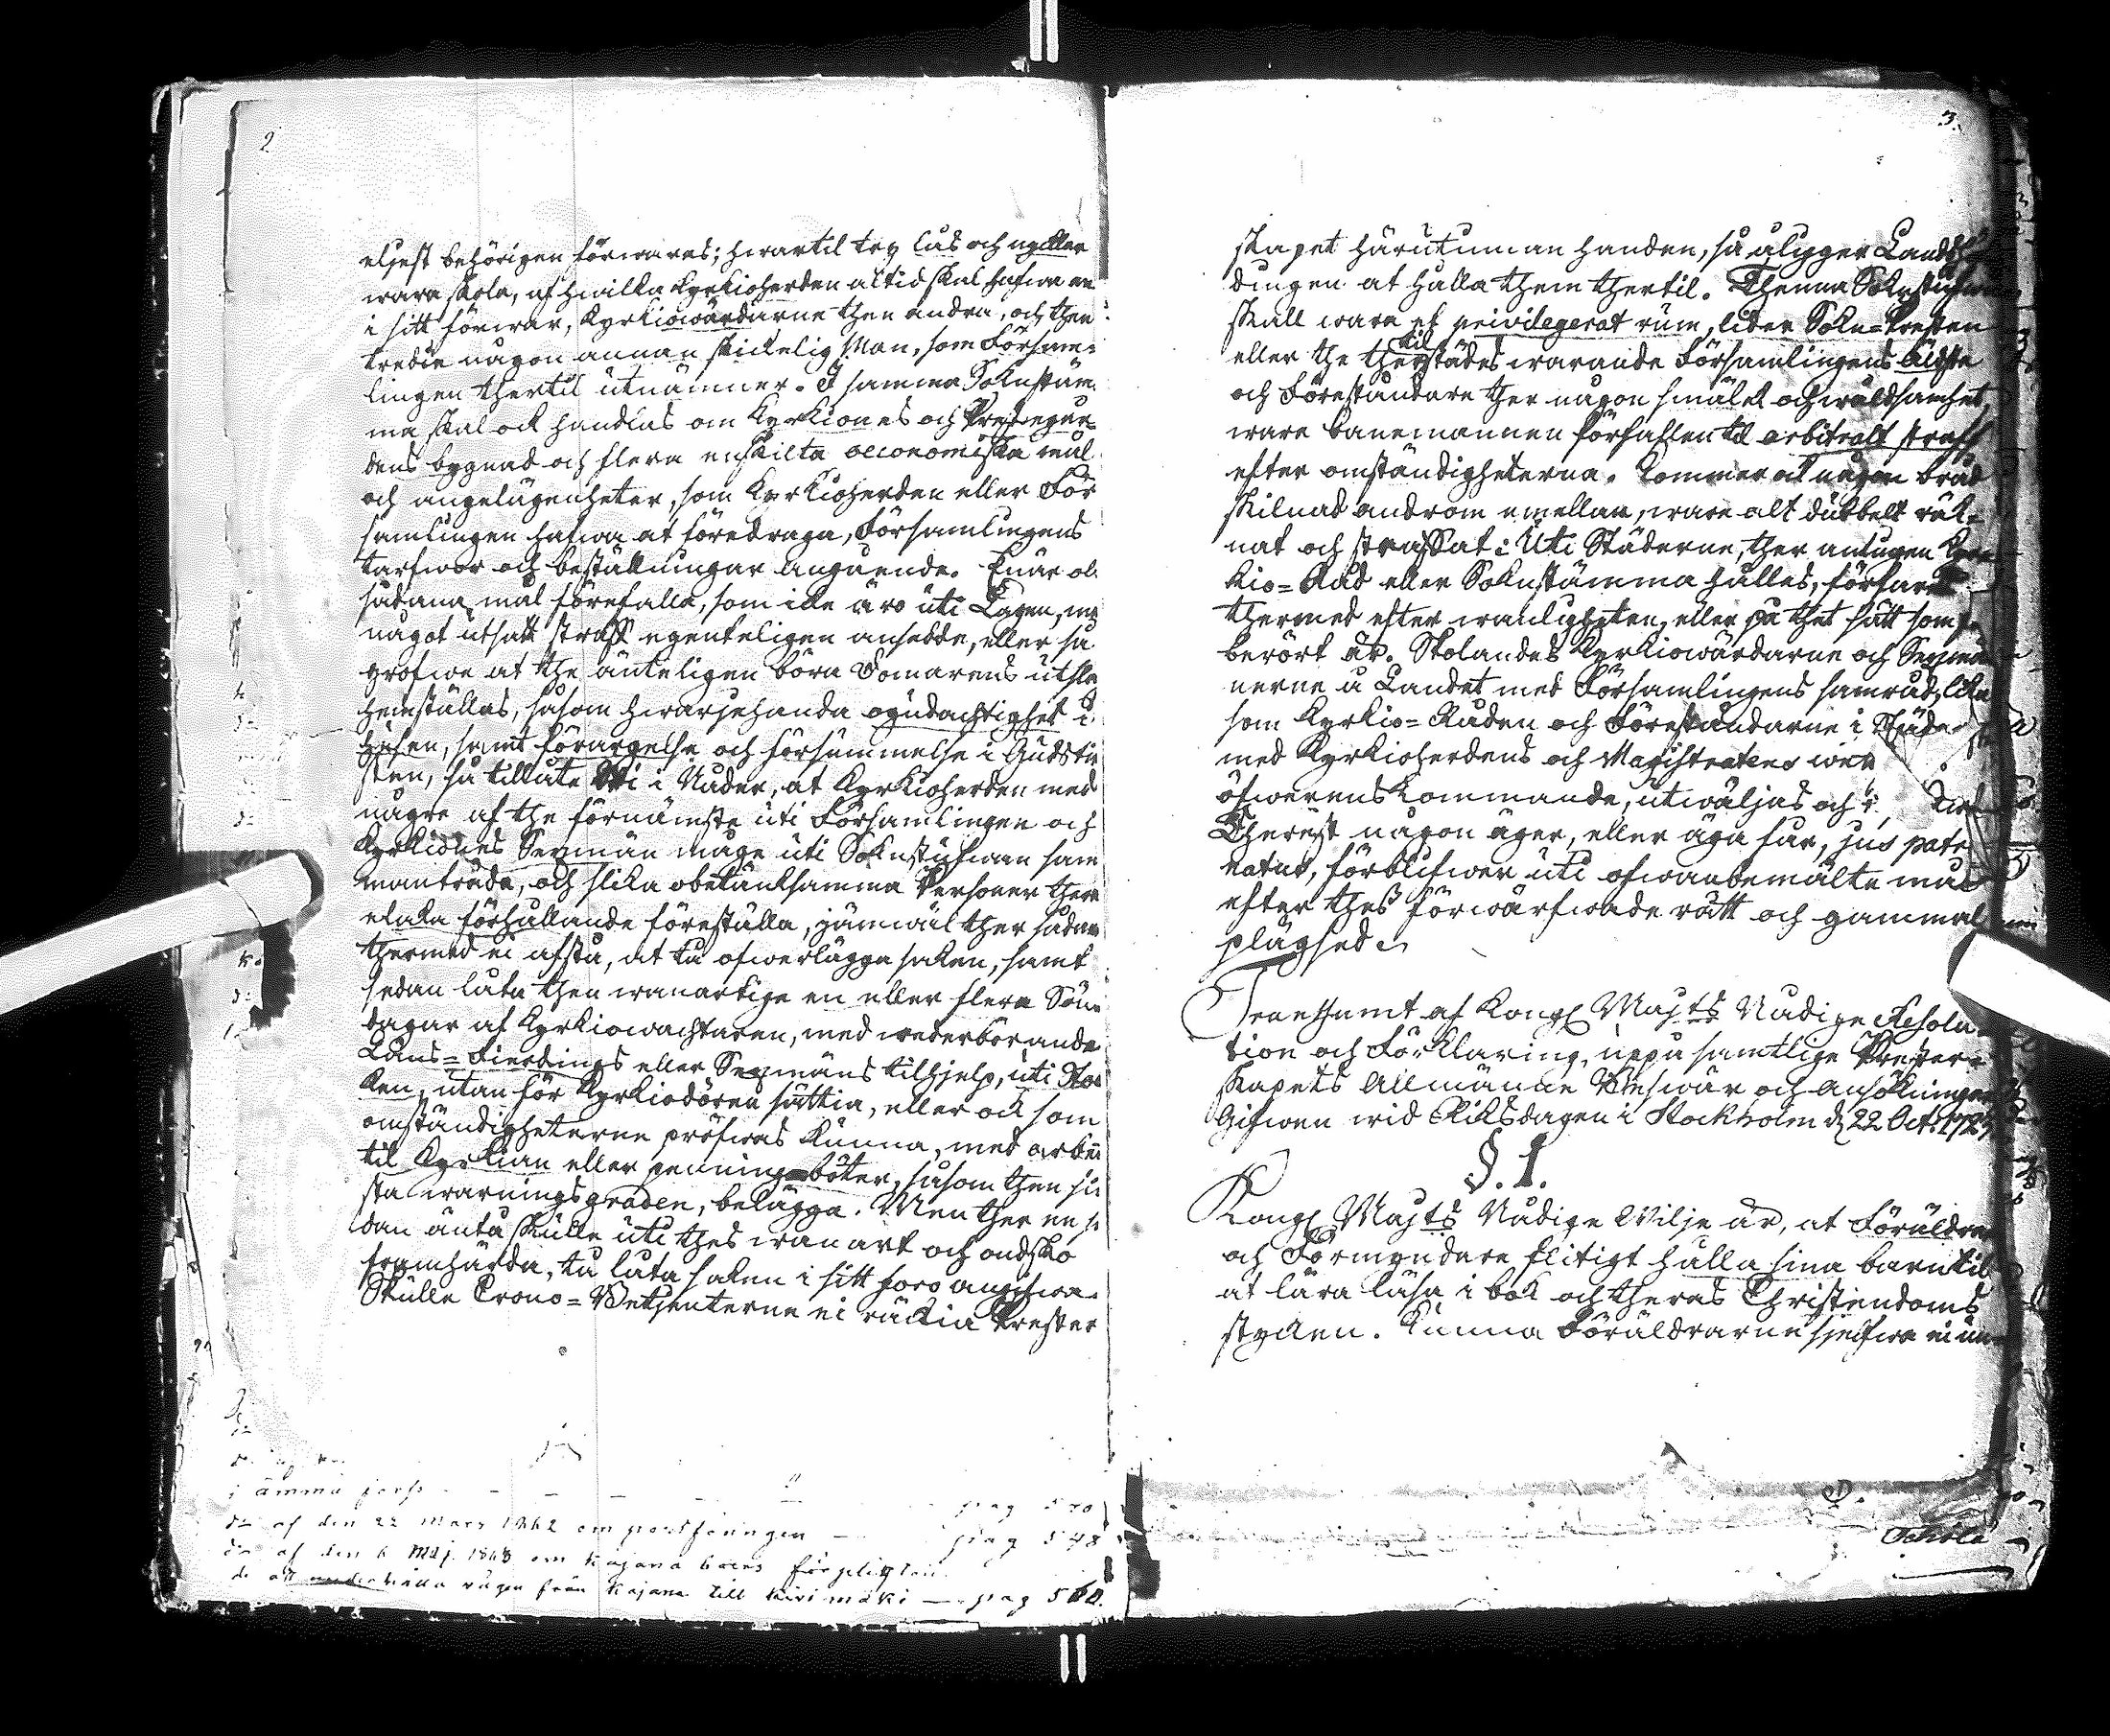 2.
eljest behörigen förwaras; hwartil try lås och nycklar
wara skola, af hwilka kyrkioherden altid skal hafwa en
i sitt förwar, kyrkiowärdarne then andra, och then
tredie någon annan skickelig Man, som Försam=
lingen thertil utnämner. I samma Soknstäm
ma skal ock handlas om kyrkiones och Prestegår
dens bygnad och flera enskilta oeconomiska mål
och angelägenheter, som kyrkioherden eller För
samlingen hafwa at föredraga, Församlingens
tarfwor och beställningar angående. Enär ock
sådana mål förefalla, som icke äro uti Lagen, me
något utsatt straff egenteligen ansedde, eller så
grofwe at the änteligen böra Domarens utsla
hemställas, såsom hwarjehanda ogudachtighet i
husen, samt förargelse och försummelse i Gudstie
sten, så tillåte Wi i Nåder, at kyrkioherden med
någre af the förnämste uti Församlingen och
kyrkiones Sexmän måge uti Soknstufwan sam
mantreda, och slika obetänksamma Personer there
elaka förhållande föreställa, jämwäl ther sådane
thermed ei afstå, at tå öfwerlägga saken, samt
sedan låta then wanartige en eller flera Sön
dagar af kyrkiowachtaren, med wederbörande
Läns= Fierdings eller Sexmäns tilhjelp, uti Stoc
ken, utan för kyrkiodören sättia, eller ock som
omständigheterne pröfwas kunna, med arbete
til kyrkian eller penningeböter, såsom then si
sta warningsgraden, belägga. Men ther en se
dan äntå skulle uti thes wanart och ondsko
framhärda, tå låta saken i sitt foro angifwa.
Skulle Crono=Betjenterne ei räckia Prester
j ämma forss - - - - pag 570
do af den 22 Mars 1862 om postföringen — pag 548
do af den 6 Maj 1868 om Kajana boers förpligten
de att underhålla vägen från Kajana till Kivimäki — pag 560.
3.
skapet härutinnan handen, så åligger Landshöf
dingen at hålla them thertil. Thenna Soknstufwan
skall wara et privilegerat rum, lider Sokn=Presten
til
eller the therstädes warande Församlingens Äldste
och Föreståndare ther någon smälek och wåldsamhet,
ware banemannen förfallen til arbitralt straff
efter omständigheterna. Kommer ock någon bråd
skilnad androm emellan, ware alt dubbelt räk=
nat och straffat: Uti Städerne, ther antingen kyr
kio=Råd eller Soknstämma hålles, förfares
thermed efter wanligheten, eller på thet sätt som f
berört är. Skolandes kyrkiowärdarne och Sexmän
nerne å Landet med Församlingens samråd, lika
som kyrkio=Råden och Föreståndarne i Städe
med kyrkioherdens och Magistratens
öfwerenskommande, utwäljas och
Therest någon äger, eller äga får, jus patr
natus, förblifwer uti ofwanbemälte måtto
efter thess förwärfwade rätt och gammal
plägsed.
Transsumt af Kongl Majts Nådige Resolu
tion och Förklaring, uppå samtlige Prester=
skapets Allmänne Beswär och ansökningar
Gifwen wid Riksdagen i Stockholm d. 22 Oct: 1723
§. 1.
Kongl Majts Nådige Wilje är, at Föräldrar
och Förmyndare flitigt hålla sina barn til
at lära läsa i bok och theras Christendoms
stycken. Kunna Föräldrarne sjelfwa ei un